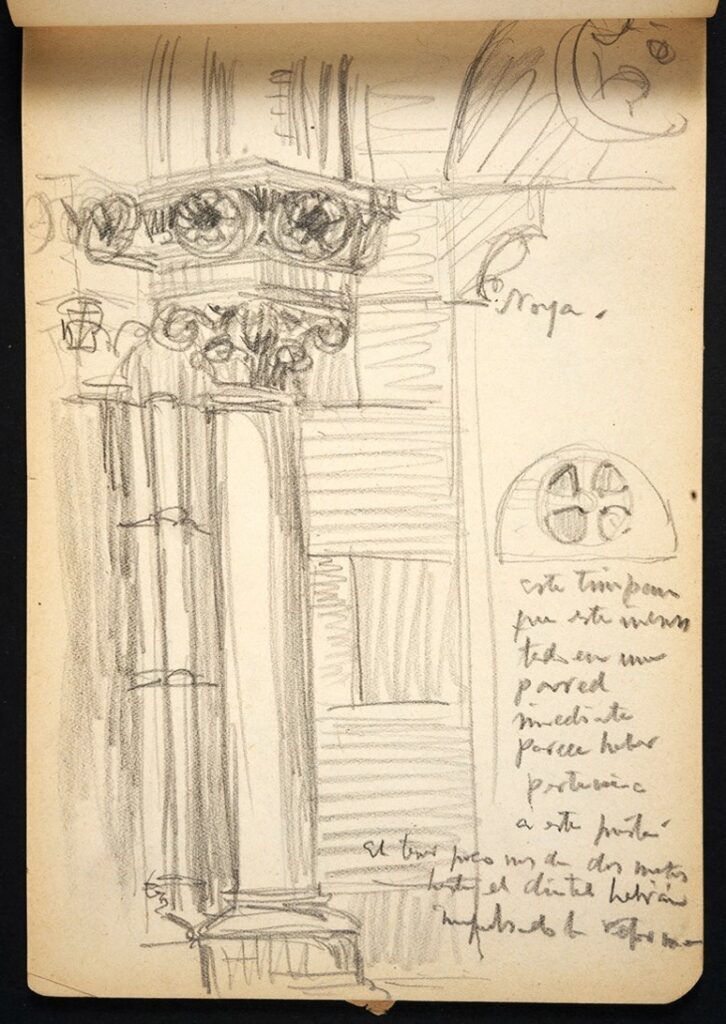 Noya.
este timpano
que este incrus
tado en una
pared
inmediata
parece haber
a este
El tener poco mas de dos metros
hasta el dintel habrán
la reforma